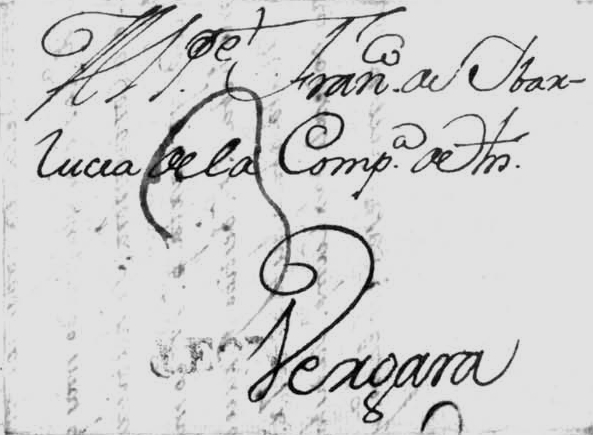 Al Pe. Franco. de Ibar-
lucea de la Compa. de Jhs.
Vergara